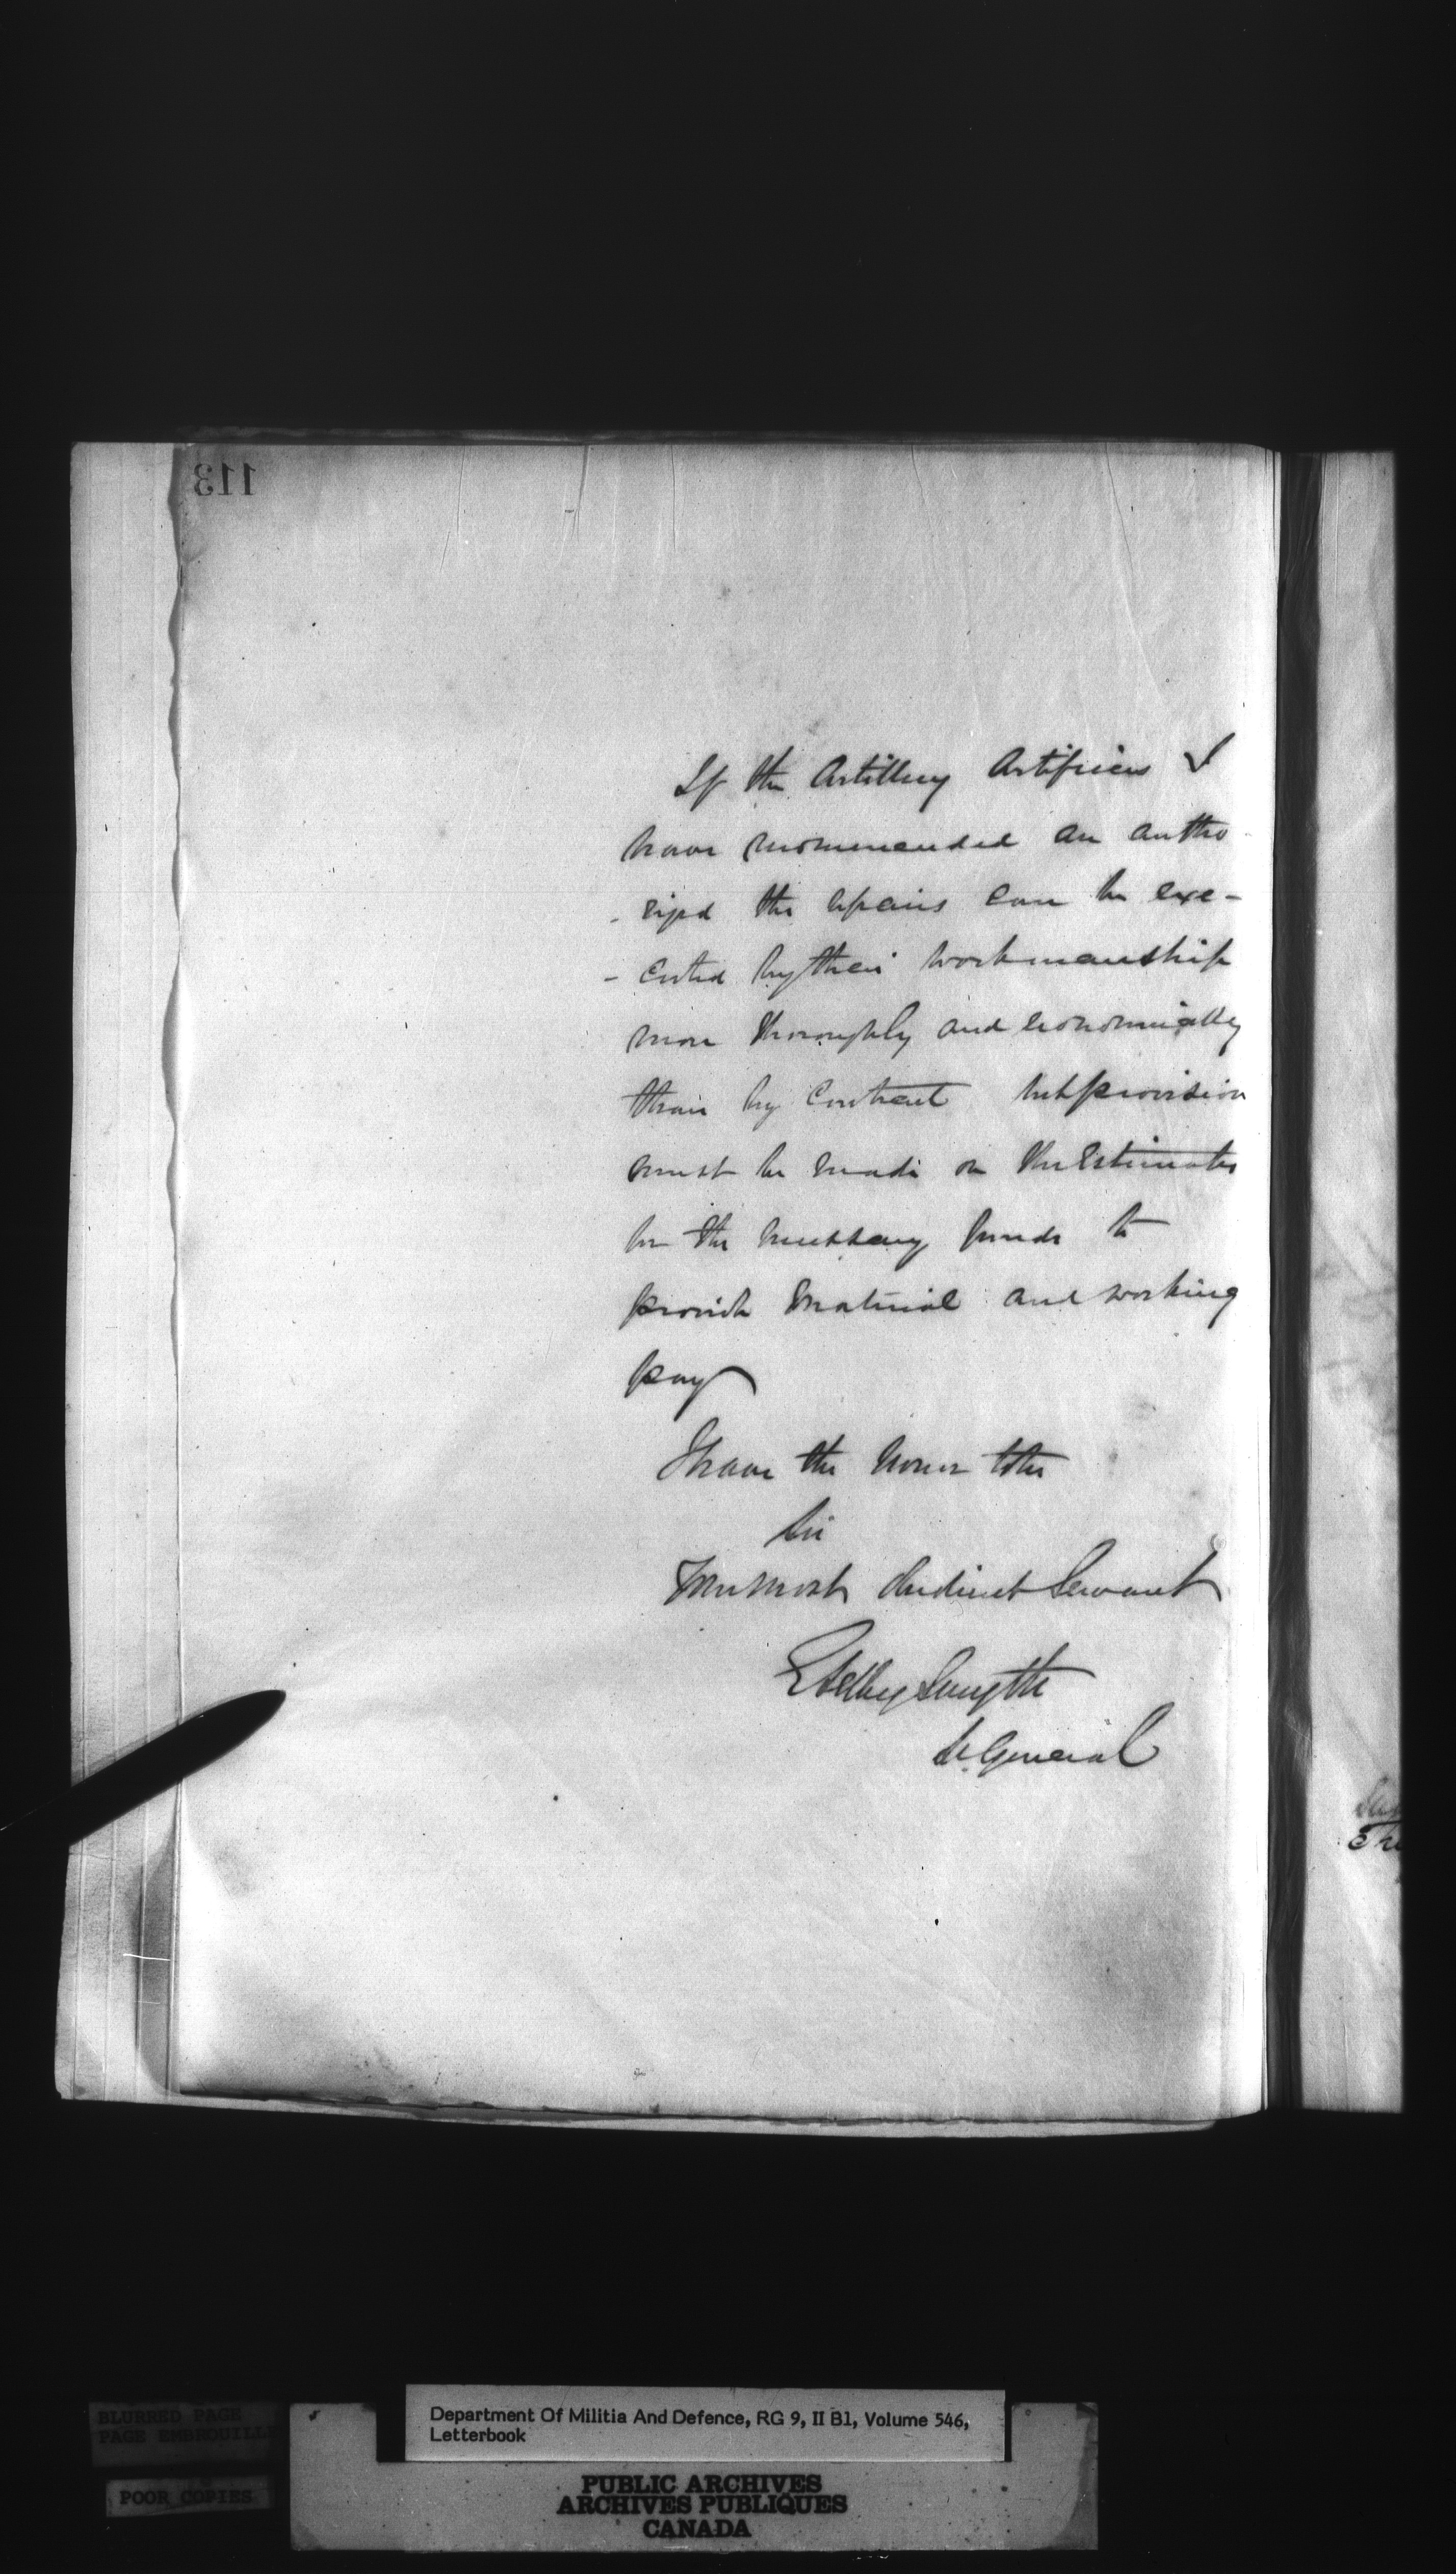 113
If the Artillery Artificers I
have recommended are autho
- rized the repairs can be exe-
- cuted by their workmanship
more thoroughly and economically
than by Contract but provision
must be made on the Estimates
for the necessary funds to
provide Material and working
pay
I have the honor to be
Sir
Your most obedient Servant
E Selby Smyth
Lt. General
BLURRED PAGE
PAGE EMBROUILLE
POOR COPIES
Department Of Militia And Defence, RG 9, II B1, Volume 546,
Letterbook
PUBLIC ARCHIVES
ARCHIVES PUBLIQUES
CANADA